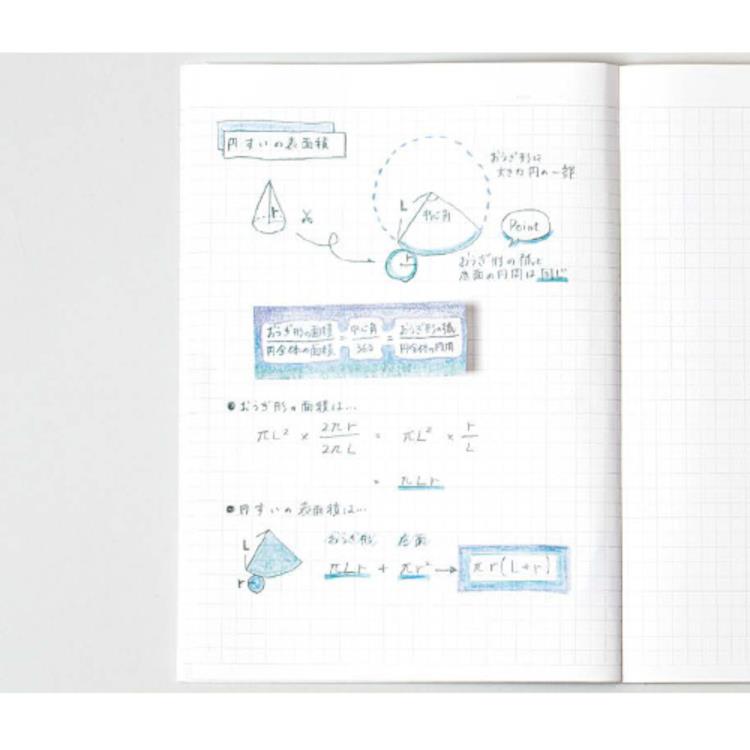 円すいの表面積
おうぎ形は
大きな円の一部
L
中心角
r
Point
r
おうぎ形の弧と
底面の円周は同じ
おうぎ形の面積/円全体の面積 = 中心角/360 = おうぎ形の弧/円全体の円周
●おうぎ形の面積は…
πL² × 2πr/2πL = πL² × r/L
= πLr
●円すいの表面積は…
L
r
おうぎ形 底面
πLr + πr² → πr(L+r)